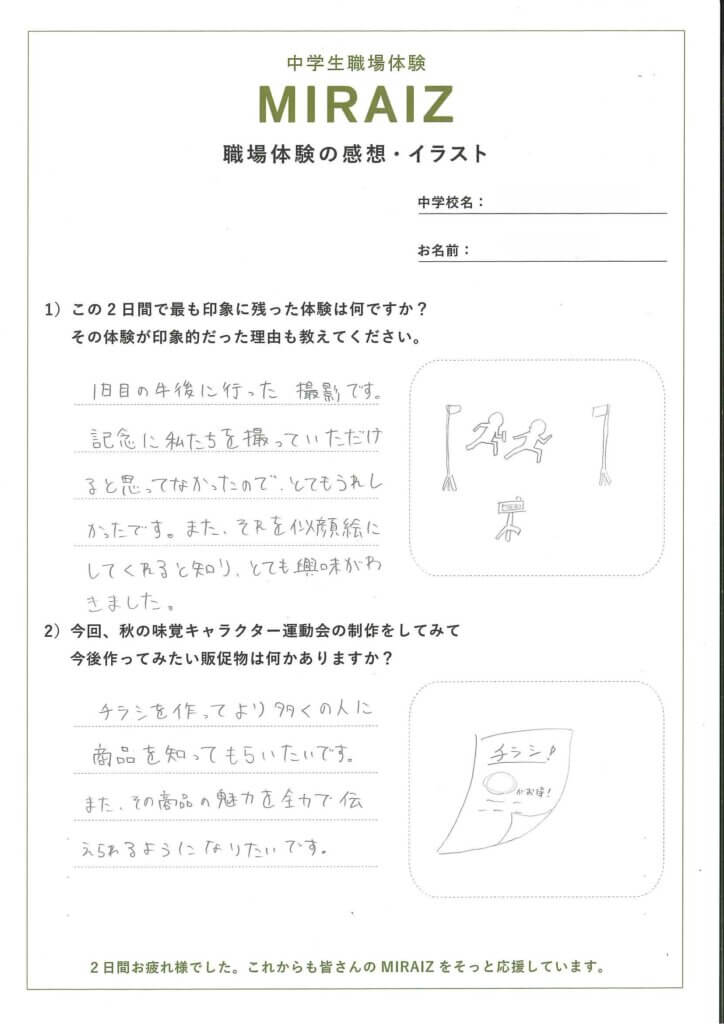 中学生職場体験
MIRAIZ
職場体験の感想・イラスト
中学校名：
お名前：
1）この2日間で最も印象に残った体験は何ですか？
その体験が印象的だった理由も教えてください。
1日目の午後に行った 撮影です。
記念に私たちを撮っていただけ
ると思ってなかったので、とてもうれし
かったです。また、それを似顔絵に
してくれると知り、とても興味がわ
きました。
2）今回、秋の味覚キャラクター運動会の制作をしてみて
今後作ってみたい販促物は何かありますか？
チラシを作ってより多くの人に
商品を知ってもらいたいです。
また、その商品の魅力を全力で伝
えられるようになりたいです。
チラシ!
がお得!
2日間お疲れ様でした。これからも皆さんのMIRAIZをそっと応援しています。